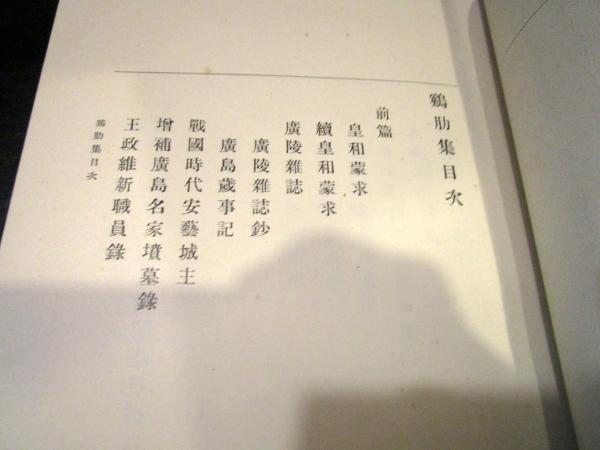 鷄肋集目次
前篇
皇和蒙求
續皇和蒙求
廣陵雜誌
廣陵雜誌鈔
廣島歲事記
戰國時代安藝城主
增補廣島名家墳墓錄
王政維新職員錄
鷄肋集目次